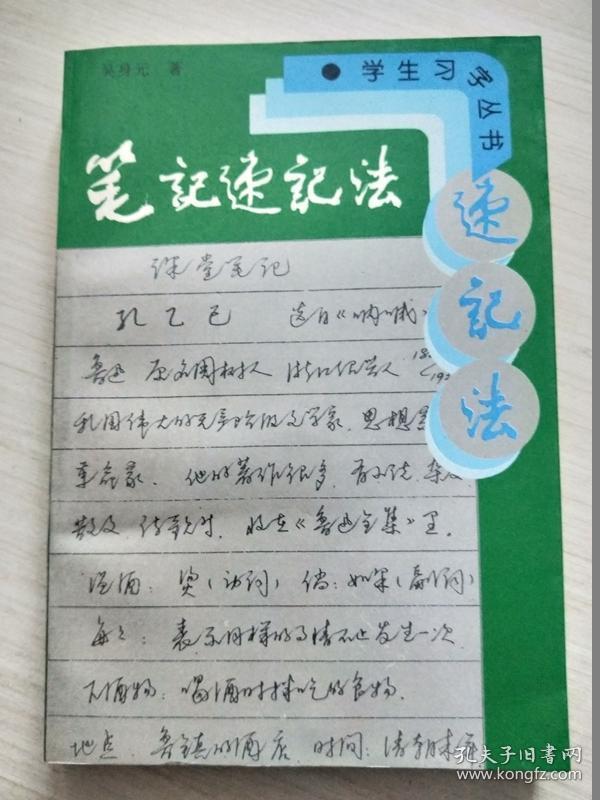 吴身元 著
●学生习字丛书
笔記速記法
速記法
课堂笔记
孔乙己 选自《呐喊》
鲁迅 原名周树人 浙江绍兴人 18
193
我国伟大的无产阶级文学家、思想家
革命家. 他的著作很多, 有小说, 杂文
散文 诗歌对. 收在《鲁迅全集》里.
温酒: 烫(动词) 倘: 如果(副词)
每每: 表示同样的事情不止发生一次
下酒物: 喝酒时搭吃的食物.
地点. 鲁镇的酒店 时间: 清朝末年
孔夫子旧书网
www.kongfz.com